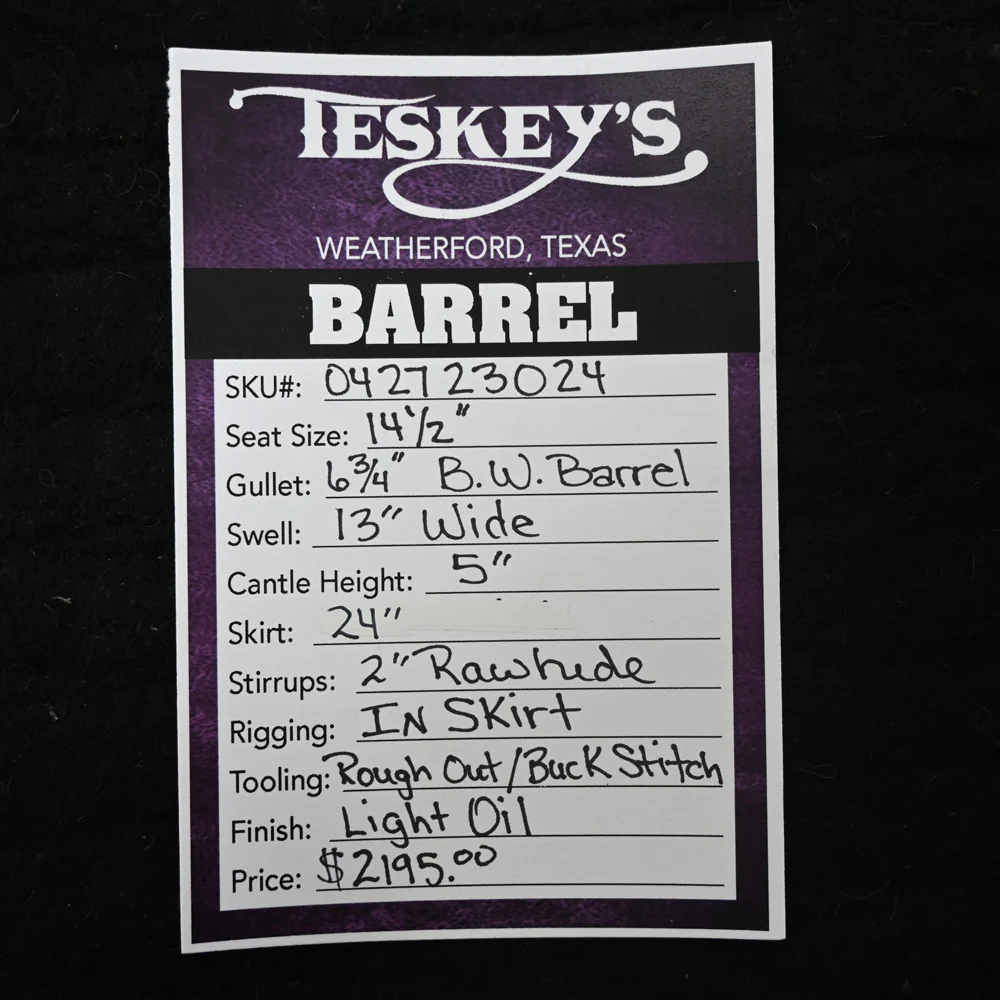 TESKEY'S
WEATHERFORD, TEXAS
BARREL
SKU#: 042723024
Seat Size: 14 1/2"
Gullet: 6 3/4" B.W. Barrel
Swell: 13" Wide
Cantle Height: 5"
Skirt: 24"
Stirrups: 2" Rawhide
Rigging: IN SKirt
Tooling: Rough Out/Buck Stitch
Finish: Light Oil
Price: $2195.00